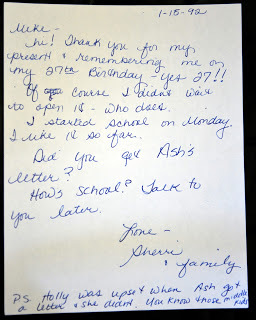 1-15-92
Mike -
Hi! Thank you for my
present & remembering me on
my 27th Birthday - yes 27!!
Of course I didn't wait
to open it - who does.
I started school on Monday.
I like it so far.
Did you get Ash's
letter?
How's school? Talk to
you later.
Love -
Sherri
& family
PS. Holly was upset when Ash got
a letter & she didn't. You know those middle
kids